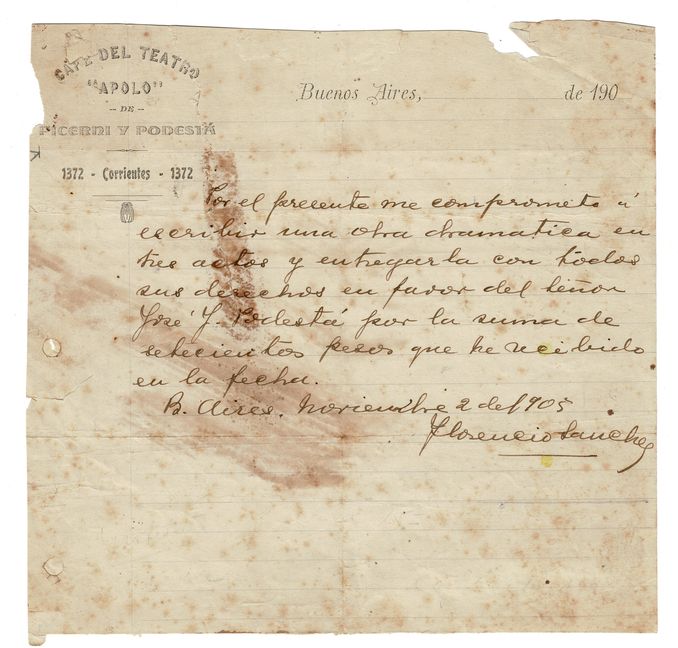 CAFE DEL TEATRO
"APOLO"
- DE -
PICERNI Y PODESTÁ
1372 - Corrientes - 1372
Buenos Aires, de 190
Por el presente me comprometo á
escribir una obra dramatica en
tres actos y entregarla con todos
sus derechos en favor del señor
José J. Podestá por la suma de
setecientos pesos que he recibido
en la fecha.
B. Aires. Noviembre 2 de 1905
Florencio Sanchez